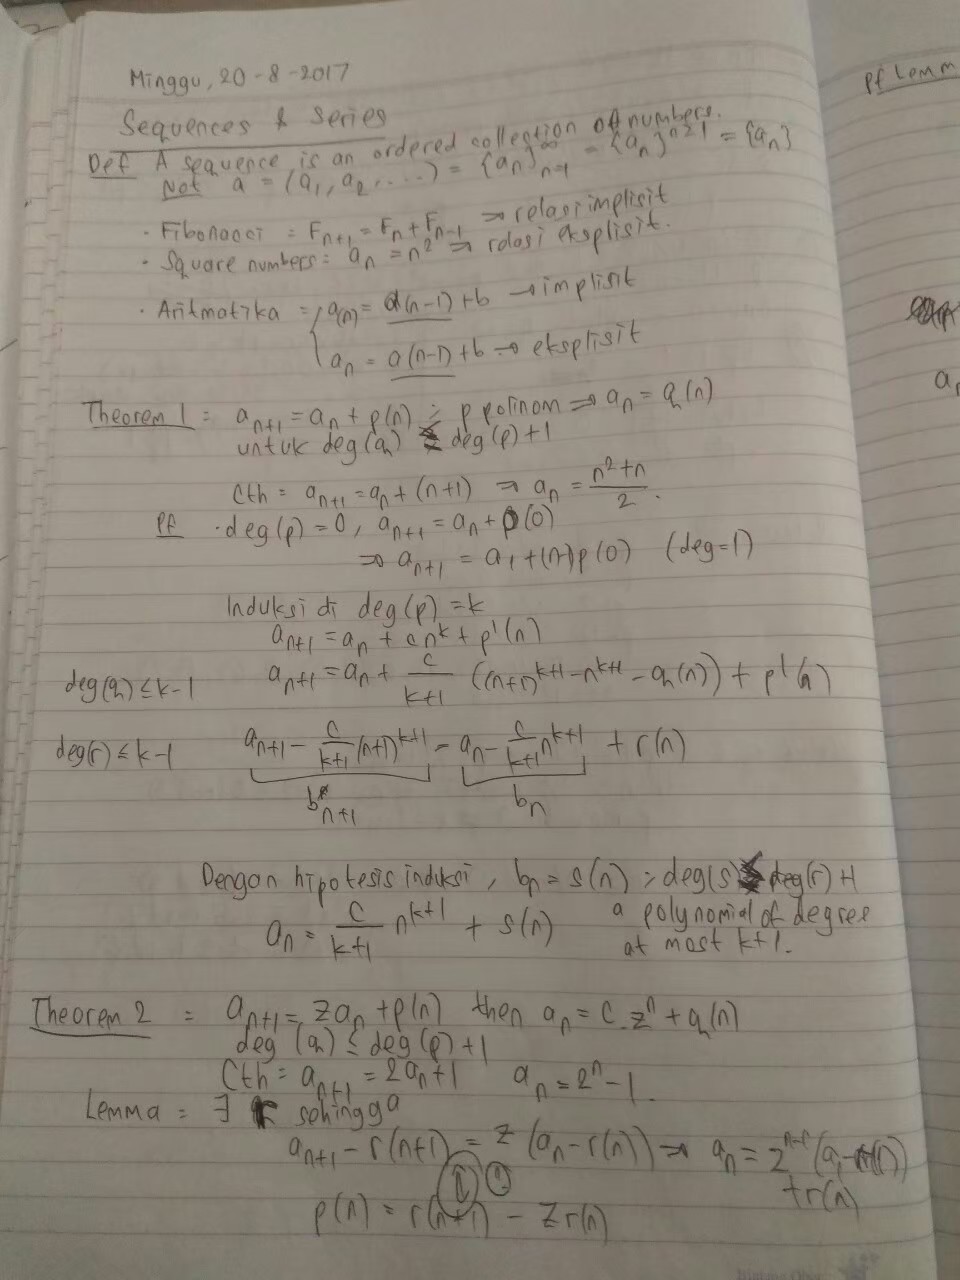 Minggu, 20-8-2017
Sequences & Series
Def A sequence is an ordered collection of numbers.
Not a = (a₁, a₂, ....) = {aₙ}^∞ₙ₌₁ = {aₙ}^n≥1 = {aₙ}
· Fibonacci = Fₙ₊₁ = Fₙ + Fₙ₋₁ → relasi implisit
· Square numbers = aₙ = n² → relasi eksplisit.
· Aritmatika = { a(n) = a(n-1) + b → implisit
aₙ = a(n-1) + b → eksplisit
Theorem 1 = aₙ₊₁ = aₙ + p(n) ; p polinom ⇒ aₙ = q(n)
untuk deg(q) ≤ deg(p)+1
Cth = aₙ₊₁ = aₙ + (n+1) ⇒ aₙ = (n²+n)/2.
Pf · deg(p) = 0, aₙ₊₁ = aₙ + p(0)
⇒ aₙ₊₁ = a₁ + (n)p(0) (deg=1)
Induksi di deg(p) = k
aₙ₊₁ = aₙ + cn^k + p'(n)
deg(q) ≤ k-1 aₙ₊₁ = aₙ + c/(k+1) ((n+1)^(k+1) - n^(k+1) - q(n)) + p'(n)
deg(r) ≤ k-1 aₙ₊₁ - c/(k+1) (n+1)^(k+1) = aₙ - c/(k+1) n^(k+1) + r(n)
bₙ₊₁ bₙ
Dengan hipotesis induksi, bₙ = s(n) ; deg(s) ≤ deg(r)+1
aₙ = c/(k+1) n^(k+1) + s(n) a polynomial of degree
at most k+1.
Theorem 2 = aₙ₊₁ = zaₙ + p(n) then aₙ = c.zⁿ + q(n)
deg(q) ≤ deg(p)+1
Cth = aₙ₊₁ = 2aₙ+1 aₙ = 2ⁿ-1.
Lemma = ∃ r sehingga
aₙ₊₁ - r(n+1) = z(aₙ - r(n)) ⇒ aₙ = z^(n-1)(a₁-r(1))
+r(n)
p(n) = r(n+1) - zr(n)
Pf Lemm